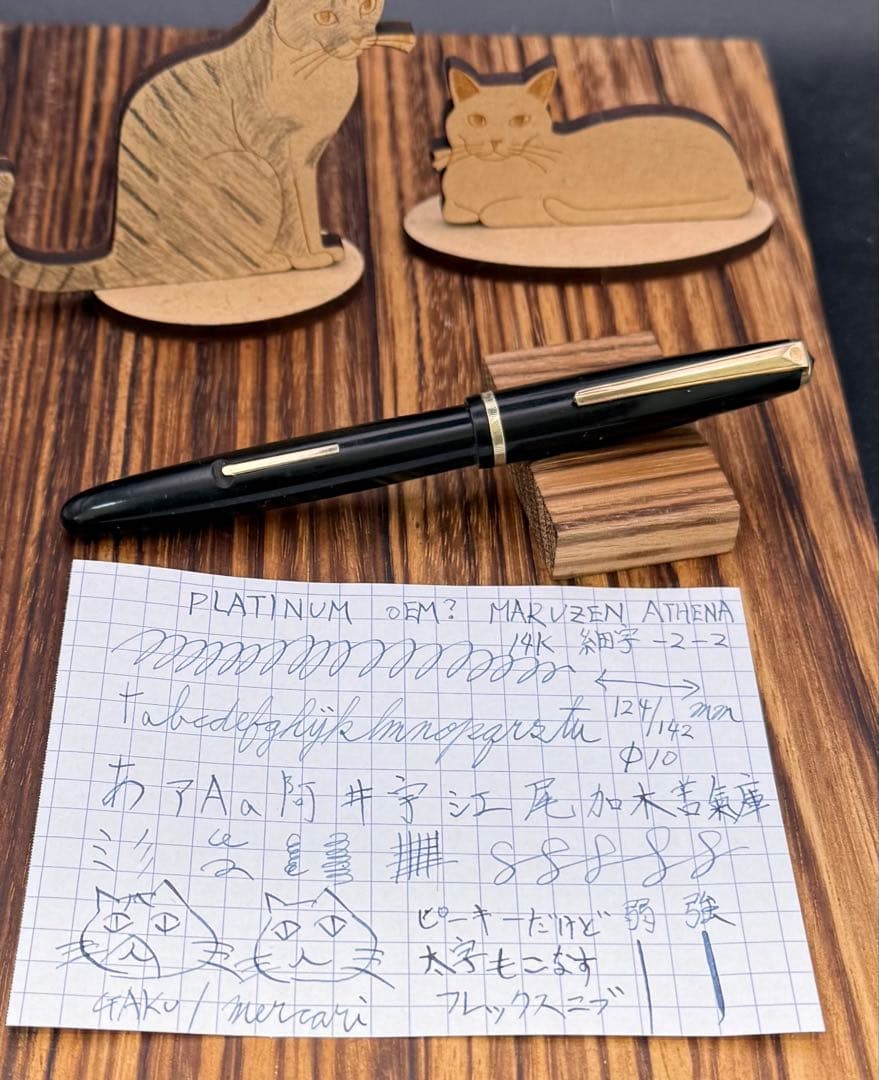 PLATINUM OEM? MARUZEN ATHENA
14K 細字 -2-2
124/142 mm
abcdefghijklmnopqrstu
φ10
あ ア A a 阿 井 宇 江 尾 加 木 善 氣 庫
ピーキーだけど 弱 強
太字もこなす
フレックスニブ
/ mercari